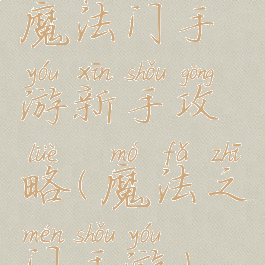 魔法门手
yóu xīn shǒu gōng
游新手攻
lüè mó fǎ zhī
略(魔法之
mén shǒu yóu
门手游)